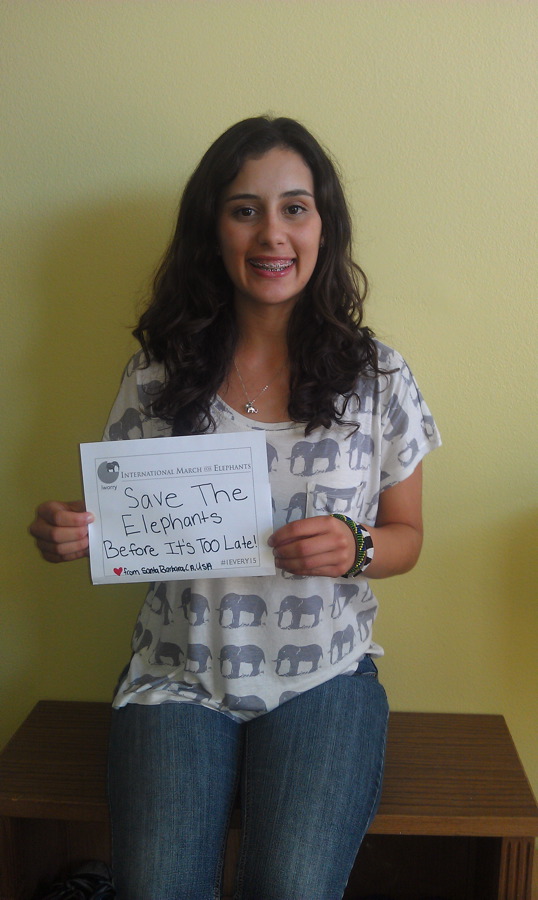 International March for Elephants
iworry
Save The
Elephants
Before It's Too Late!
♥ from Santa Barbara, CA, USA
#1EVERY15